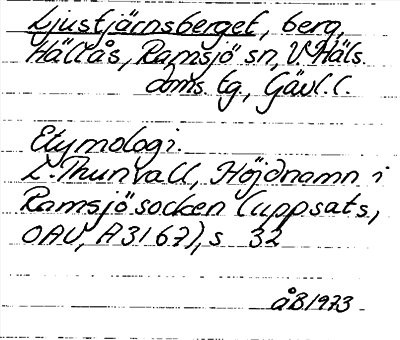 Ljustjärnsberget, berg,
Hällås, Ramsjö sn, V. Häls.
doms. tg., Gävl. l.
Etymologi.
L. Thunvall, Höjdnamn i
Ramsjö socken (uppsats,
OAU, A 3167), s 32
åB 1973